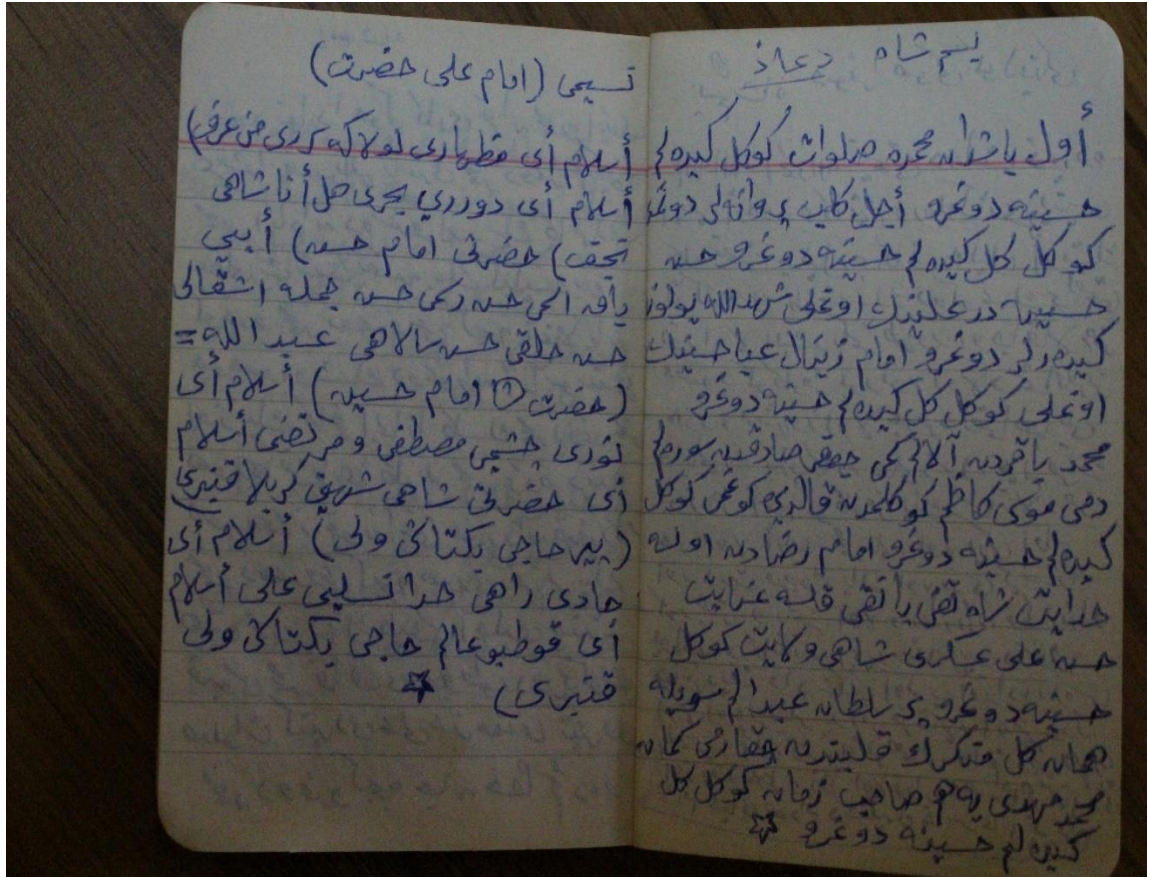 بسم شاه دعاذ
أول باشدان محمده صلوات كوكل كيده لم
حسينه دوغرو أجل كلب پروانه لر دونر
كو كل كل كيده لم حسينه دوغرو حسن
حسينه در علينك اوغلى شهد الله بولنور
كيدرلر دوغرو امام زينال عبا حسينك
اوغلى كوكل كل كيده لم حسينه دوغرو
محمد باقردن آلالم كمى جعفر صادقدن سورالم
دمى موسى كاظم كوكلمدن قالدى كو غمى كوكل
كيده لم حسينه دوغرو امام رضادن اوله
هدايت شاه تقى با نقى قلسه عنايت
حسن على عسكرى شاهى ولايت كوكل
حسينه دوغرو پر سلطان عبدالم سويله
همان كل منكرك قلبندن چقارمى كمان
محمد مهدى يه هم صاحب زمان كوكل كل
كيده لم حسينه دوغرو
تسيحى (امام على حضرت)
أسلام أى مظهارى لولاك سررى من عرف)
أسلام أى دوررى بحرى هل أتا شاهى
نجف) حضرتى امام حسن) أيبى
پاك الحى حسن ركى حسن جمله اشقالى
حسن خلقى حسن سالاهى عبد الله =
(حضرت امام حسين) أسلام أى
نورى چشمى مصطفى و مرتضى أسلام
أى حضرتى شاهى شهيق كربلا قنبرى
(پير حاجى بكتاش ولى) أسلام أى
هادى راهى خدا تسليمى على أسلام
أى قوطبو عالم حاجى بكتاش ولى
قنبرى)